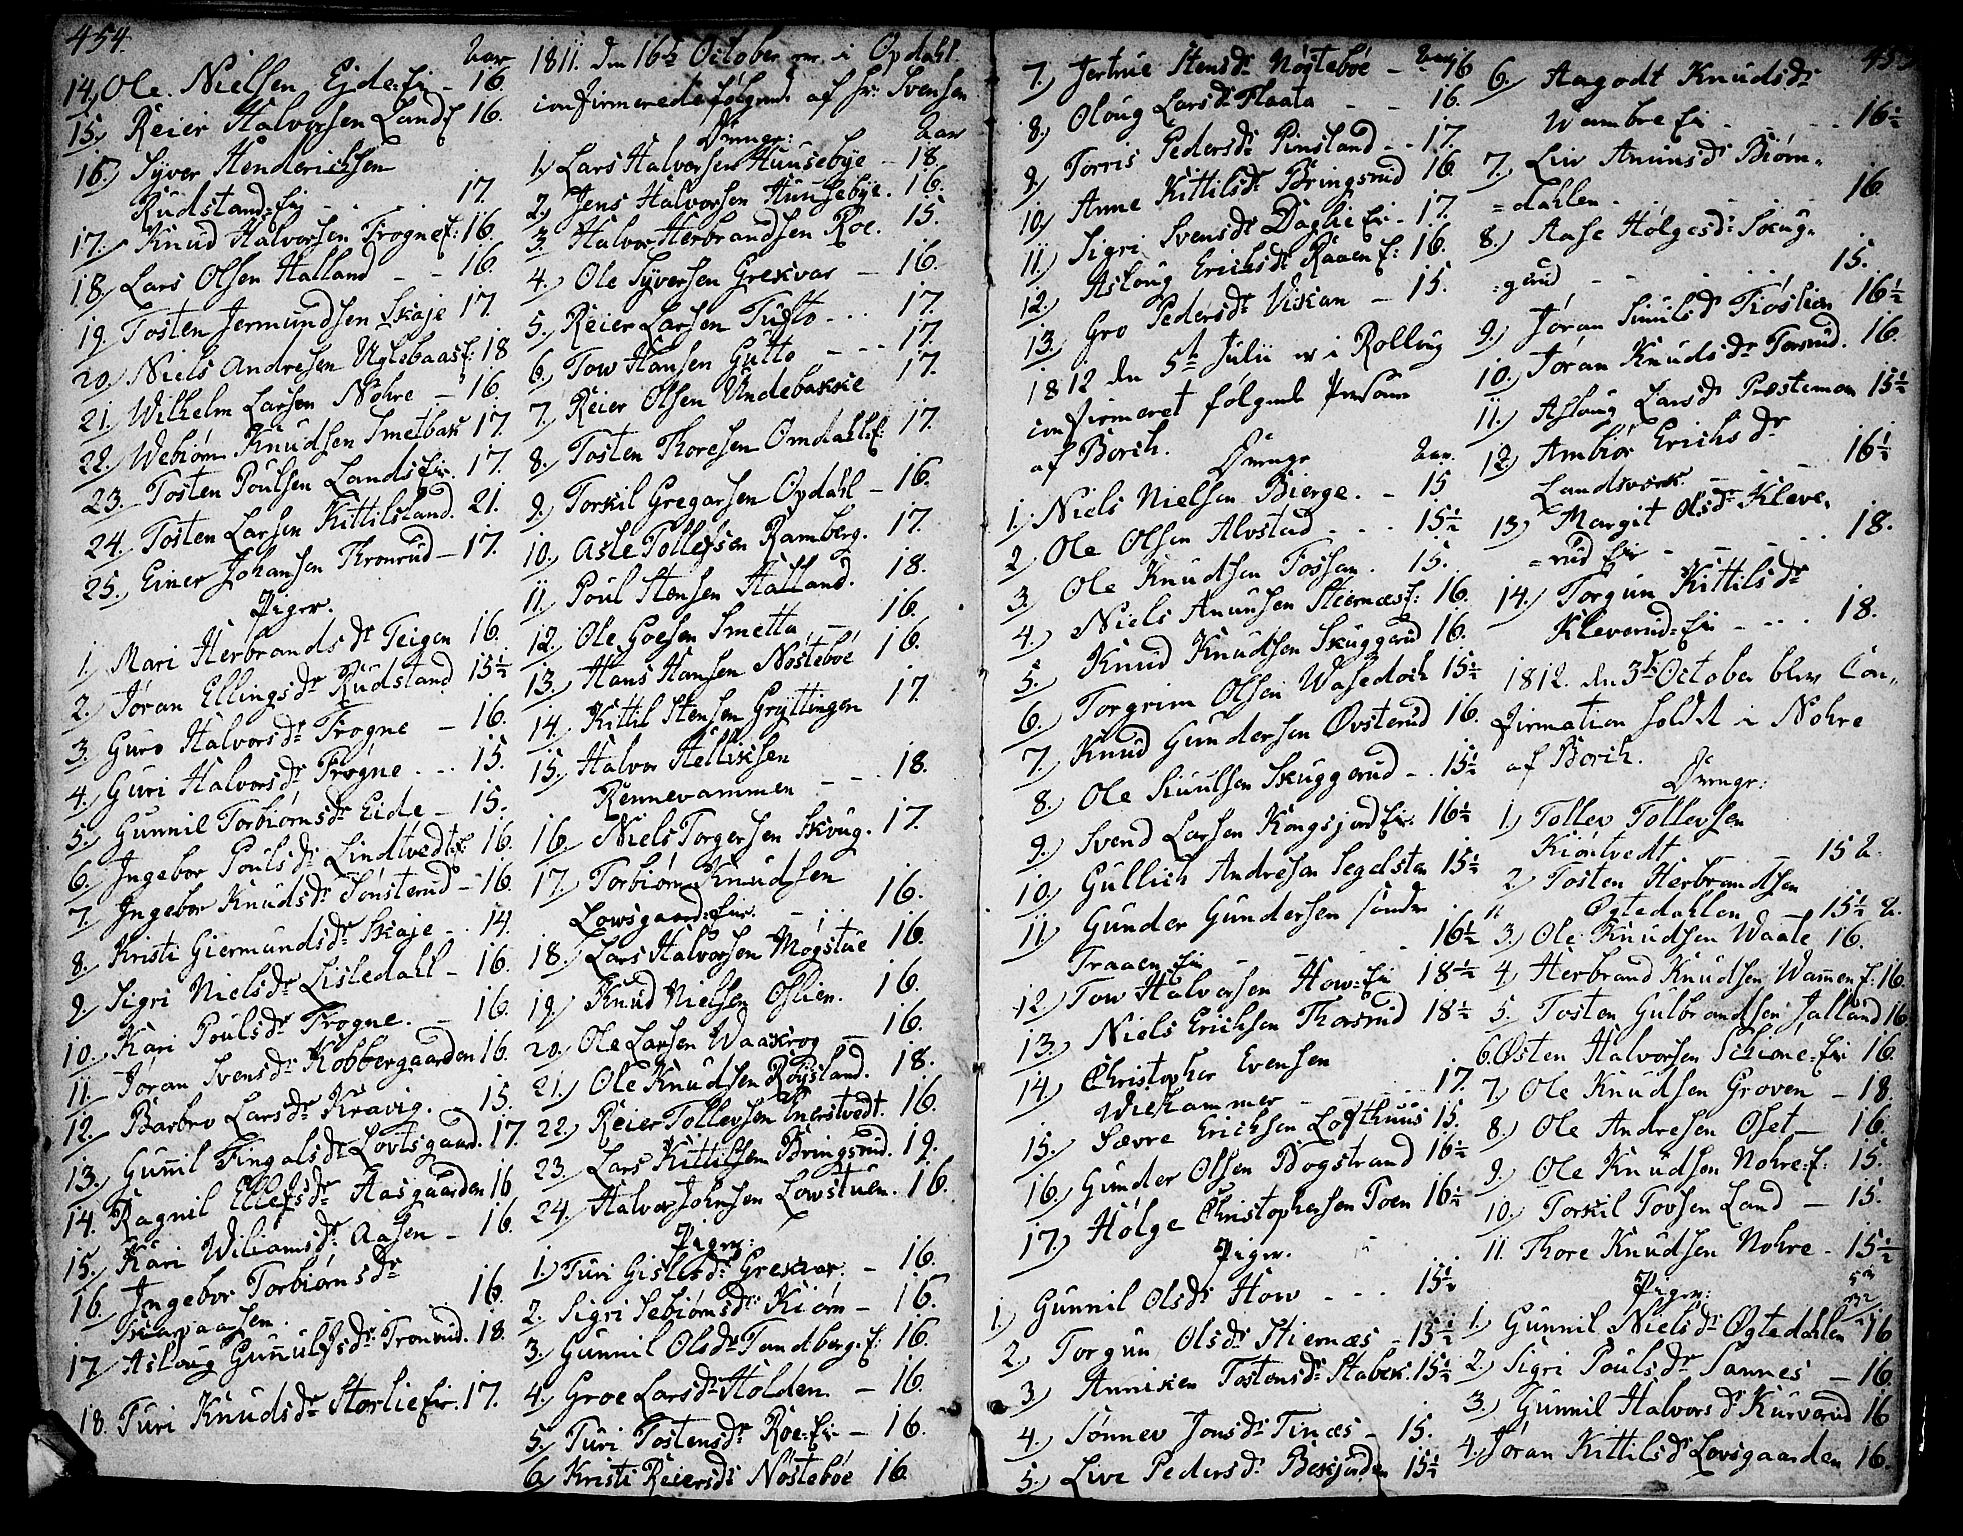 454.
Aar
14, Ole Nielsen Ejde Ei - 16.
15, Reier Halvorsen Land E 16.
16, Syver Henderichsen
Rudstand Ei - - - 17.
17. Knud Halvorsen Frogne E: 16.
18, Lars Olsen Halland - - 16.
19. Tosten Jermundsen Skaje 17.
20, Niels Andresen Uglebaas E: 18
21. Wilhelm Larsen Nohre - 16.
22. Webiørn Knudsen Smetbak 17.
23. Tosten Poulsen Lands Ei. 17.
24. Tosten Larsen Kittilsland. 21.
25. Einer Johansen Thronrud - 17.
Piger.
1, Mari Herbrands Dr Teigen 16.
2. Jøran Ellings Dr Rudstand 15½
3. Guro Halvors Dr Frogne - 16.
4. Guri Halvors Dr Frogne - - 15.
5. Gunnil Torbiørns Dr Eide - 15.
6. Ingebor Pouls Dr Lindtvedt E: 16.
7. Ingebor Knuds Dr Sønsterud - 16.
8. Kristi Giermunds Dr Skaje - 14.
9. Sigri Niels Dr Lisledahl - 16.
10. Kari Pouls Dr Frogne. - 16.
11. Jøran Svens Dr Kobbergaarden 16.
12. Barbro Lars Dr Kravig. 15.
13. Gunnil Fingals Dr Lovtsgaard. 17.
14. Ragnil Ellefs Dr Aasgaarden 16
15. Kari Wiliams Dr Aasen - 16.
16. Ingebor Torbiørns Dr
Skarpaasen. 16.
17. Asloug Gunulfs Dr Tronrud. 18.
18. Turi Knuds Dr Storlie Eir. 17.
1811. den 16de October er i Opdahl
confirmerede følgende af Hr: Svensen
Drenge: Aar
1. Lars Halvorsen Huusebye - 18.
2. Jens Halvorsen Huusebye. 16.
3 Halvor Herbrandsen Roe. 15.
4. Ole Syversen Grexvar - 16.
5. Reier Larsen Tufto - - - 17.
6. Tow Hansen Gutto - - - 17.
7. Reier Olsen Undebakke 17.
8. Tosten Thoresen Omdahl E: 17.
9. Torkil Gregarsen Opdahl - 16.
10. Asle Tollefsen Ramberg. 17.
11. Poul Stensen Halland. 18.
12. Ole Goesen Smetta - 16.
13. Hans Hansen Nøsteboe 16.
14. Kittil Stensen Gryttingen 17.
15. Halvor Hellixsen
Rennevammen - - - 18.
16. Niels Torgersen Skoug. 17.
17. Torbiørn Knudsen
Lowsgaard Eir. - - - 16.
18. Lars Halvorsen Mogstue 16.
19. Knud Nielsen Oslien. 16.
20. Ole Larsen Waaxrog - 16.
21. Ole Knudsen Røysland. 18.
22. Reier Tollevsen Enerstvedt. 16.
23. Lars Kittilsen Bringsrud. 19.
24. Halvor Johnsen Lowstuen. 16.
Piger:
1. Turi Gisles Dr Grexvar. - 16.
2. Sigri Sebiørns Dr Kiørn - 16.
3. Gunnil Ols Dr Tundberg. E: 16.
4. Groe Lars Dr Holden - 16.
5. Turi Tostens Dr Roe. Ei - 16.
6. Kristi Reiers Dr Nøsteboe 16.
7. Jertrue Stens Dr Nøsteboe - Aar 16
8. Oloug Lars Dr Flaata - - 16.
9. Torris Peders Dr Rinsland - - 17.
10. Anne Kittils Dr Bringsrud 16.
11. Sigri Svens Dr Daglie Ei - 17.
12. Asloug Erichs Dr Raaen E: 16.
13. Gro Peders Dr Viskan - 15.
1812 den 5te Julii er i Rolloug
confirmeret følgende Personer
af Borch.
Drenge Aar.
1. Niels Nielsen Bierge. - 15
2 Ole Olsen Alvstad - - - 15½
3. Ole Knudsen Fossan. 15.
4. Niels Anunsen Stiernæs E: 16.
5. Knud Knudsen Skuggerud 16.
6. Torgrim Olsen Wasedoch 15½
7. Knud Gundersen Øvsterud 16.
8. Ole Siuulsen Skuggerud - 15½
9. Svend Larsen Kongsjord Eir. 16½
10. Gullich Andresen Segelsten 15½
11. Gunder Gundersen søndre
Traaen Ei - - - 16½
12 Tow Halvorsen How Ei 18½
13. Niels Erichsen Thorsrud 18½
14. Christopher Evensen
Wiekammer - - - 17.
15. Sævre Erichsen Lofthuus 15.
16. Gunder Olsen Bogstrand 16½
17. Holge Christophersen Toen 16½
Piger.
1. Gunnil Ols Dr How - - - 15½
2. Torgun Ols Dr Stiernæs - 15½
3. Annixen Tostens Dr Stabek. 15½
4. Sønnev Jons Dr Tinæs - 15.
5. Live Peders Dr Beskjorden 15½
6. Aagodt Knuds Dr
Wambre Ei - - - 16½
7. Liv Anuns Dr Biørn-
=dahlen - - - 16.
8. Aase Holges Dr Skug-
=gerud - - - 15.
9. Jøran Siuuls Dr Fiøslien 16½
10. Jøran Knuds Dr Forsrud. 16.
11. Asloug Lars Dr Præstemoen 15½
12. Ambiør Erichs Dr
Landsværk - - 16½
13. Margit Ols Dr Kleve-
=rud Ei - - - 18.
14. Torgun Kittils Dr
Kleverud Ei - - - 18.
1812. den 3de October blev Con-
firmation holdt i Nohre
af Borch.
Drenge:
1. Tollev Tollevsen
Kiøntvedt - 15 A.
2 Tosten Herbrandsen
Øgtedahlen - 15½ A.
3. Ole Knudsen Waale 16.
4. Herbrand Knudsen Wamen E: 16.
5. Tosten Gulbrandsen Jalland 16.
6. Østen Halvorsen Schiøne Ei 16.
7. Ole Knudsen Groven - 18.
8. Ole Andresen Oset - 16.
9. Ole Knudsen Nohre E: 15.
10. Torkil Tovsen Land - 15.
11. Thore Knudsen Nohre - 15½
Piger:
1. Gunnil Niels Dr Øgtedahlen 16
2. Sigri Pouls Dr Sannes - 16
3. Gunnil Halvors Dr Kurverud 16
4. Jøran Kittils Dr Lovsgaarden 16.